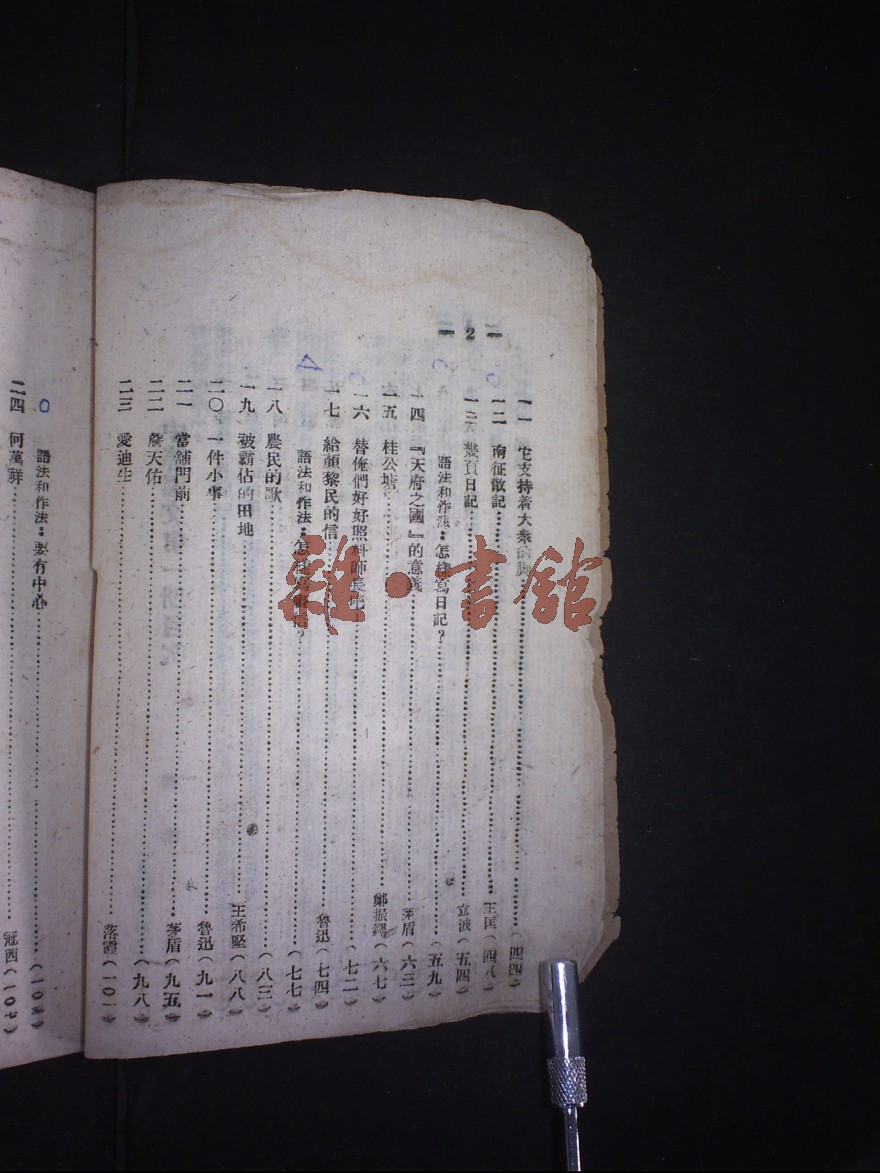 — 2 —
一一 它支持着大衆的
一二 南征散記……王匡(四八)
一三 幾頁日記……立波(五四)
語法和作法:怎樣寫日記?……(五九)
一四 『天府之國』的意義……茅盾(六三)
一五 桂公塘……鄭振鐸(六七)
一六 替俺們好好照料師長吧……(七二)
一七 給顏黎民的信……魯迅(七四)
語法和作法:怎樣寫書信?……(七七)
一八 農民的歌……(八三)
一九 被霸佔的田地……王希堅(八八)
二〇 一件小事……魯迅(九一)
二一 當舖門前……茅盾(九五)
二二 詹天佑……(九八)
二三 愛迪生……落霞(一〇一)
語法和作法:要有中心……
二四 何萬祥……冠西(一〇七)
雜·書館